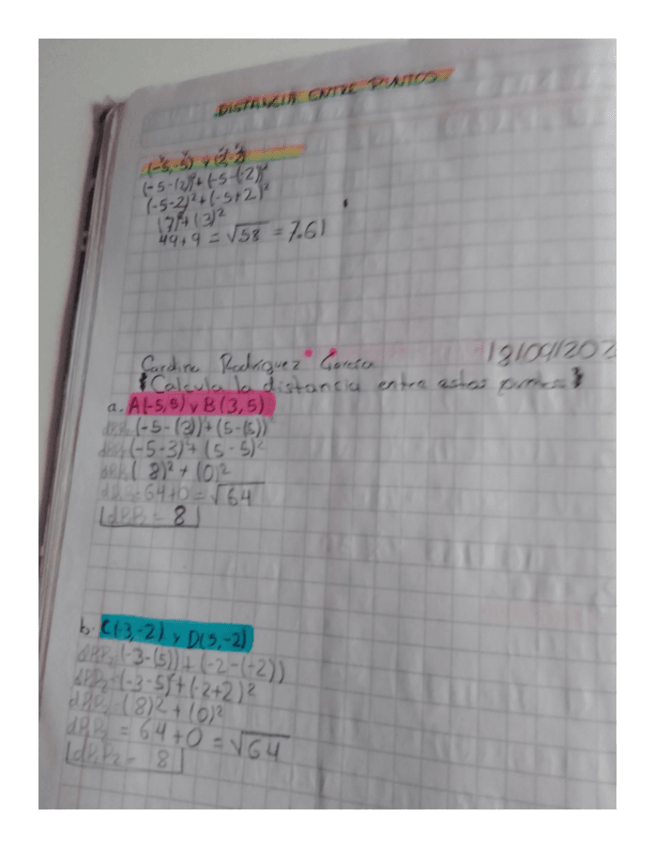 DISTANCIA ENTRE PUNTOS
(-5,-5) y (2,-2)
(-5-(2))²+(-5-(-2))²
(-5-2)²+(-5+2)²
(7)²+(3)²
49+9 = √58 = 7.61
Rodriguez Garcia 18/04/202
Calcula la distancia entre estos puntos
a. A(-5,5) y B(3,5)
(-5-(3))+(5-(5))
(-5-3)²+(5-5)²
(8)²+(0)²
64+0=√64
= 8
b. C(-3,-2) y D(5,-2)
(-3-(5))+(-2-(-2))
(-3-5)²+(-2+2)²
(8)²+(0)²
= 64+0 = √64
= 8